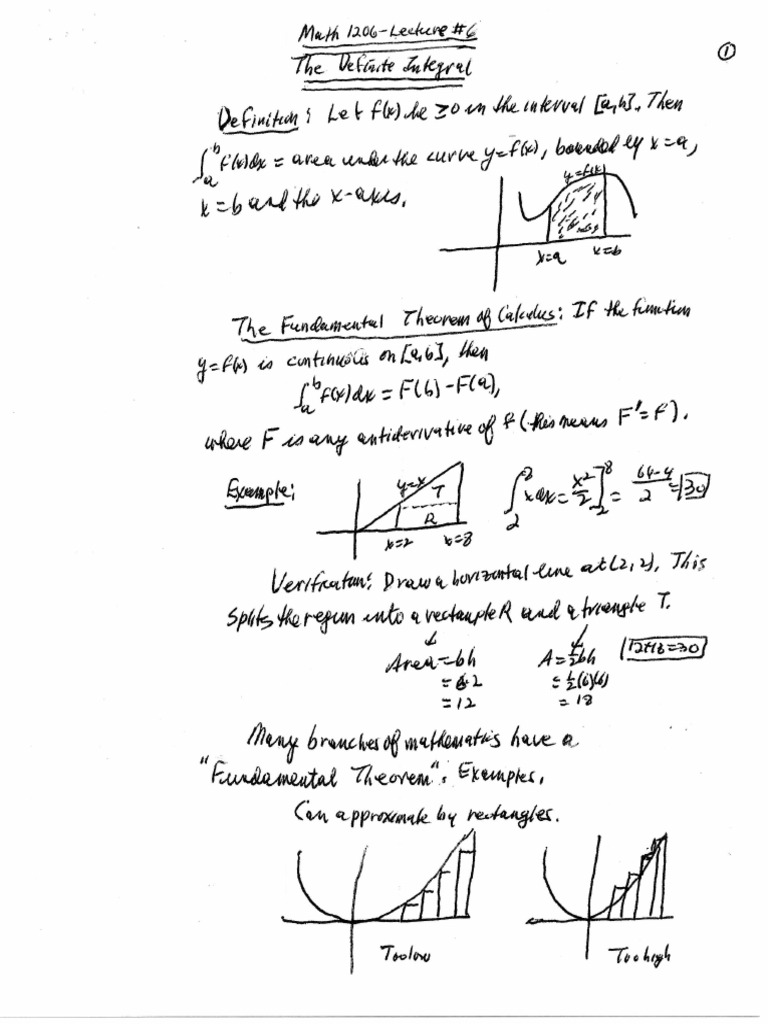 Math 1206-Lecture #6
①
The Definite Integral
Definition: Let f(x) be ≥0 in the interval [a,b]. Then
∫_a^b f(x)dx = area under the curve y=f(x), bounded by x=a,
x=b and the x-axis.
y=f(x)
x=a x=b
The Fundamental Theorem of Calculus: If the function
y=f(x) is continuous on [a,b], then
∫_a^b f(x)dx = F(b)-F(a),
where F is any antiderivative of f (this means F'=f).
Example:
y=x T
R
x=2 x=8
∫_2^8 xdx = x²/2]_2^8 = (64-4)/2 = 30
Verification: Draw a horizontal line at (2,2). This
splits the region into a rectangle R and a triangle T.
Area=bh A=½bh 12+18=30
=6·2 =½(6)(6)
=12 =18
Many branches of mathematics have a
"Fundamental Theorem". Examples.
Can approximate by rectangles.
Too low Too high